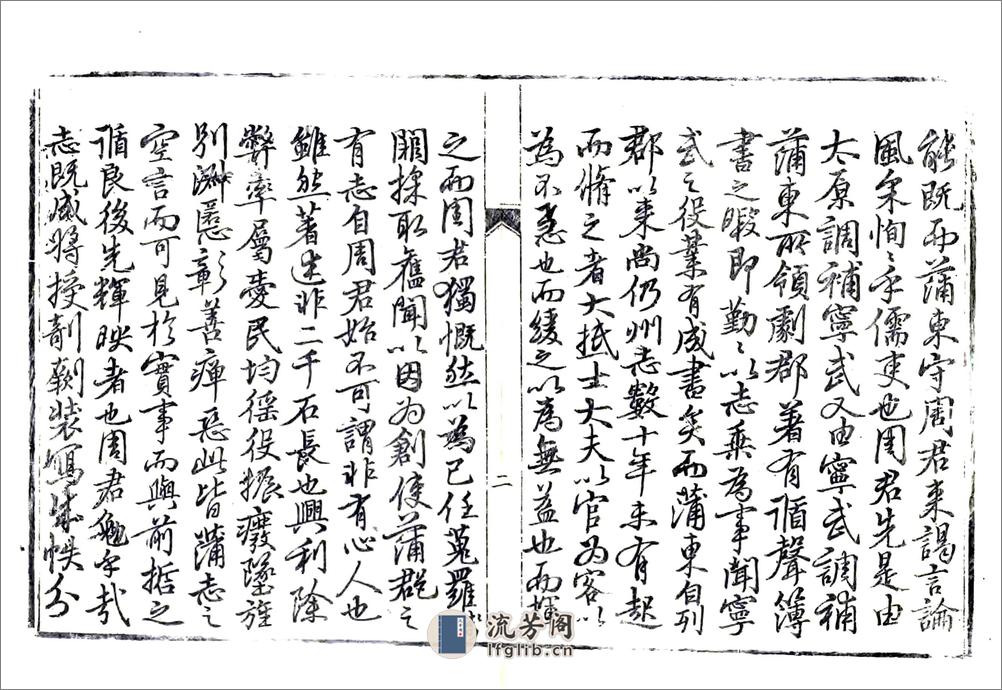 能既而蒲東守周君來謁言論
風采恂〻乎儒吏也周君先是由
太原調補寧武又由寧武調補
蒲東所領劇郡著有循聲簿
書之暇即勤〻以志乘為事聞寧
武之役業有成書矣而蒲東自列
郡以來尚仍州志數十年未有起
而脩之者大抵士大夫以官為客以
為不急也而緩之以為無益也而
二
之而周君獨慨然以為已任蒐羅
闕採取舊聞以因為創使蒲郡之
有志自周君始不可謂非有心人也
雖然著述非二千石長也興利除
弊率屬愛民均徭役振癈墜旌
別淑慝彰善癉惡此皆蒲志之
空言而可見於實事而與前哲之
循良後先輝映者也周君勉乎哉
志既成將授剞劂裝寫成帙分
流芳阁
lfglib.cn